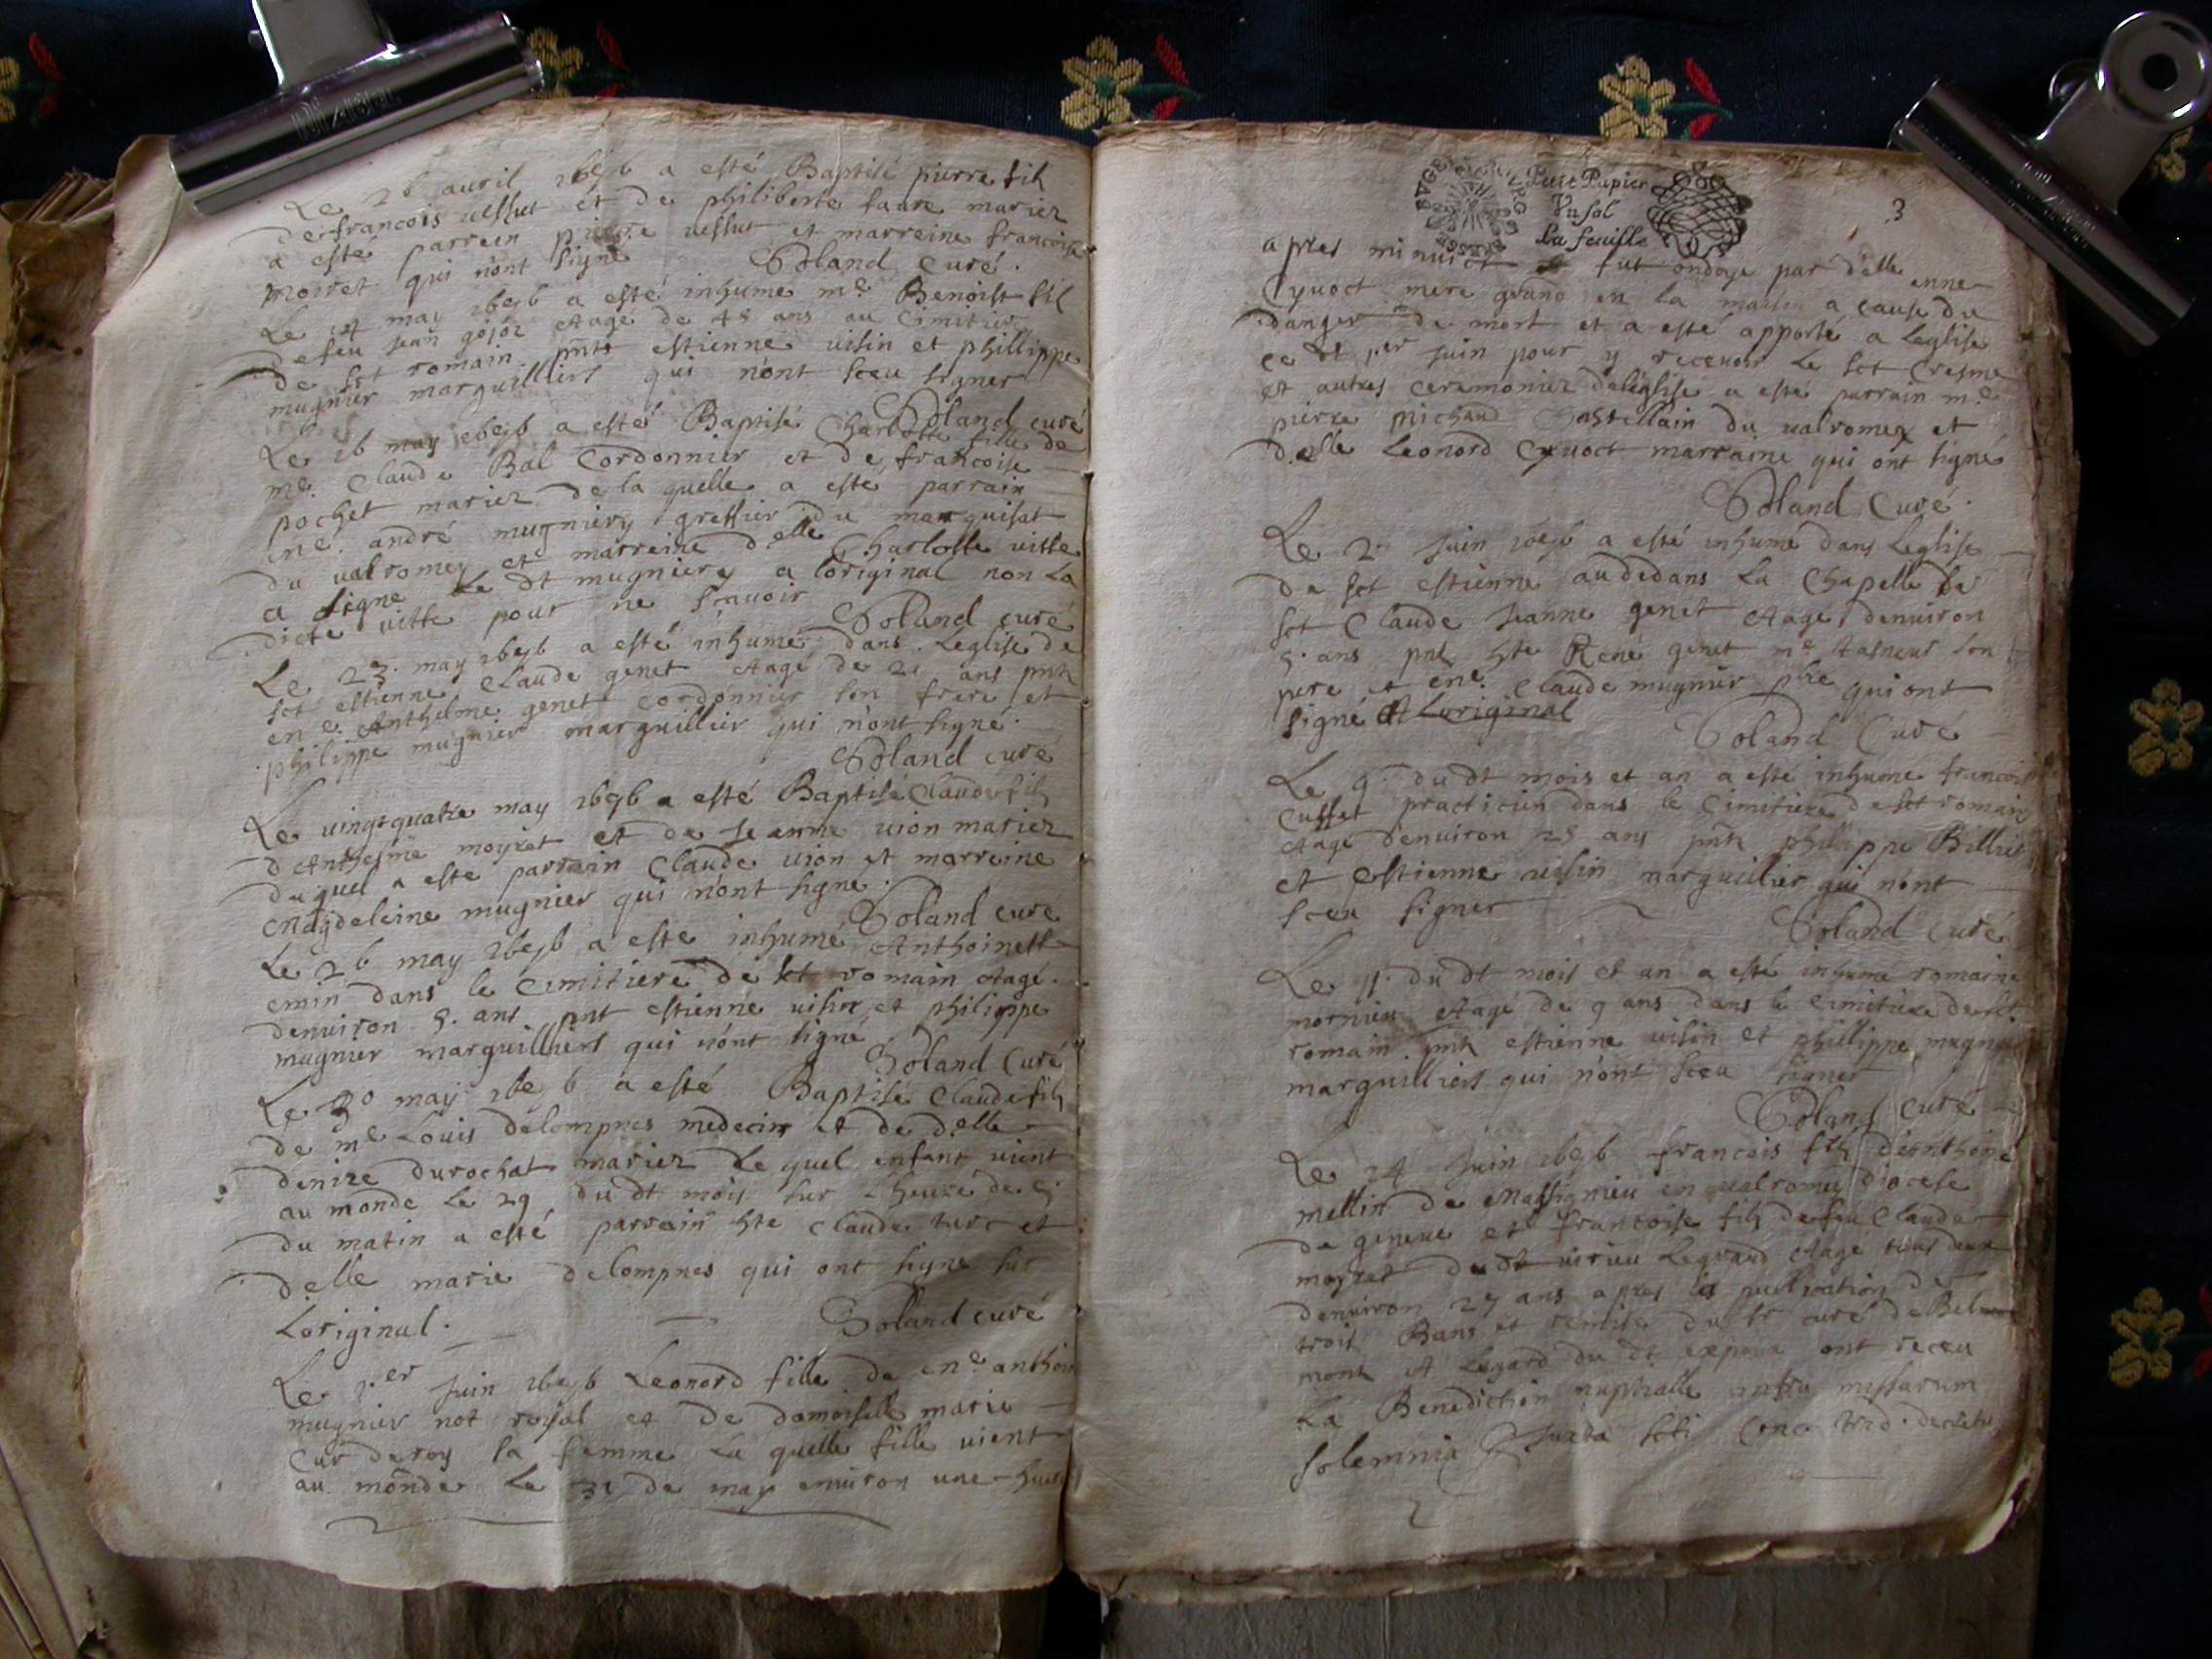 Le 26 auril 1676 a esté Baptisé pierre fils
de francois uessut et de philiberte faure mariez
a esté parrein pierre uessut et marreine francoise
moiret qui n'ont signé Boland Curé.
Le 14 may 1676 a esté inhumé me Benoist fil
de feu Jean gojoz Aagé de 45 ans au Cimitier
de sct romain pnts estienne uisin et phillippe
mugnier marguilliers qui n'ont sceu signer
Boland curé
Le 16 may 1676 a esté Baptisé Charlotte fille de
me. Claude Bal Cordonnier et de francoise
pochet mariez de la quelle a esté parrain
me. andré mugniery greffier du marquisat
du ualromey et marreine delle Charlotte uitte
a signé Le dt mugniery a l'original non La
dicte uitte pour ne scauoir Boland curé
Le 23. may 1676 a esté inhumé dans Leglise de
sct estienne Claude genet Aagé de 21 ans pnts
en e. Anthelme genet cordonnier son frere et
philippe mugnier marguillier qui n'ont signé.
Boland curé
Le uingtquatre may 1676 a esté Baptisé Claude fils
d'Anthelme moyret et de Jeanne uion mariez
du quel a esté parrain Claude uion et marreine
Magdeleine mugnier qui n'ont signé.
Boland curé
Le 26 may 1676 a esté inhumé Anthoinett
emin dans le Cimitiere de sct romain Aagé.
denuiron 5. ans pnt estienne uisin et philippe
mugnier marguilliers qui n'ont signé
Boland Curé
Le 30 may 1676 a esté Baptisé Claude fils
de me Louis delompnes medecin et de delle
denize durochat mariez Le quel enfant uient
au monde Le 29 du dt mois sur L heure de 5.
du matin a esté parrain hte Claude turc et
delle marie delompnes qui ont signé sur
Loriginal. Boland curé
Le 1.er Juin 1676 Leonord fille de en e anthoin
mugnier not royal et de damoiselle marie
Cur deroy sa femme La quelle fille uient
au monde Le 31 de may enuiron une heure
BVGEY
Petit Papier
Vn sol
La feuille
3
apres minuict fut ondoye par delle enne
Cyuoct mere grand en la maison a cause du
danger de mort et a esté apporté a Leglise
ce dt 1.er Juin pour y receuoir Le sct Cresme
et autres ceremonies de leglise a esté parrain me.
pierre michaud Chastellain du ualromey et
delle Leonord Cyuoct marraine qui ont signé
Boland Curé.
Le 2. Juin 1676 a esté inhumé dans Leglise
de sct estienne au dedans La Chapelle de
sct Claude Jeanne genet Aagé denuiron
5. ans pnts hte René genet me tasneur son
pere et en e. Claude mugnier pbre qui ont
signé A Loriginal Boland Curé
Le 9. du dt mois et an a esté inhumé francois
Cusset practicien dans le Cimitiere de sct romain
Aagé denuiron 25 ans pnts philippe Billiet
et Estienne uisin marguillier qui n'ont
sceu signer Boland Curé
Le 11. du dt mois et an a esté inhumé romaine
mornieu Aagé de 9 ans dans le Cimitiere de sct
romain pnts estienne uisin et phillippe mugnier
marguilliers qui n'ont sceu signer
Boland Curé
Le 24 Juin 1676 francois fils d'anthoine
mellin de Massignieu en ualromey diocese
de geneue et francoise fils de feu Claude
moyret du dt uirieu Legrand Aagé tous deux
denuiron 25 ans apres la publication de
trois Bans et remise du sr curé de Bel
mont A Legard du dt expoux ont receu
La Benediction nuptialle intra missarum
solemnia Juxta scti Conc. trid. decreta